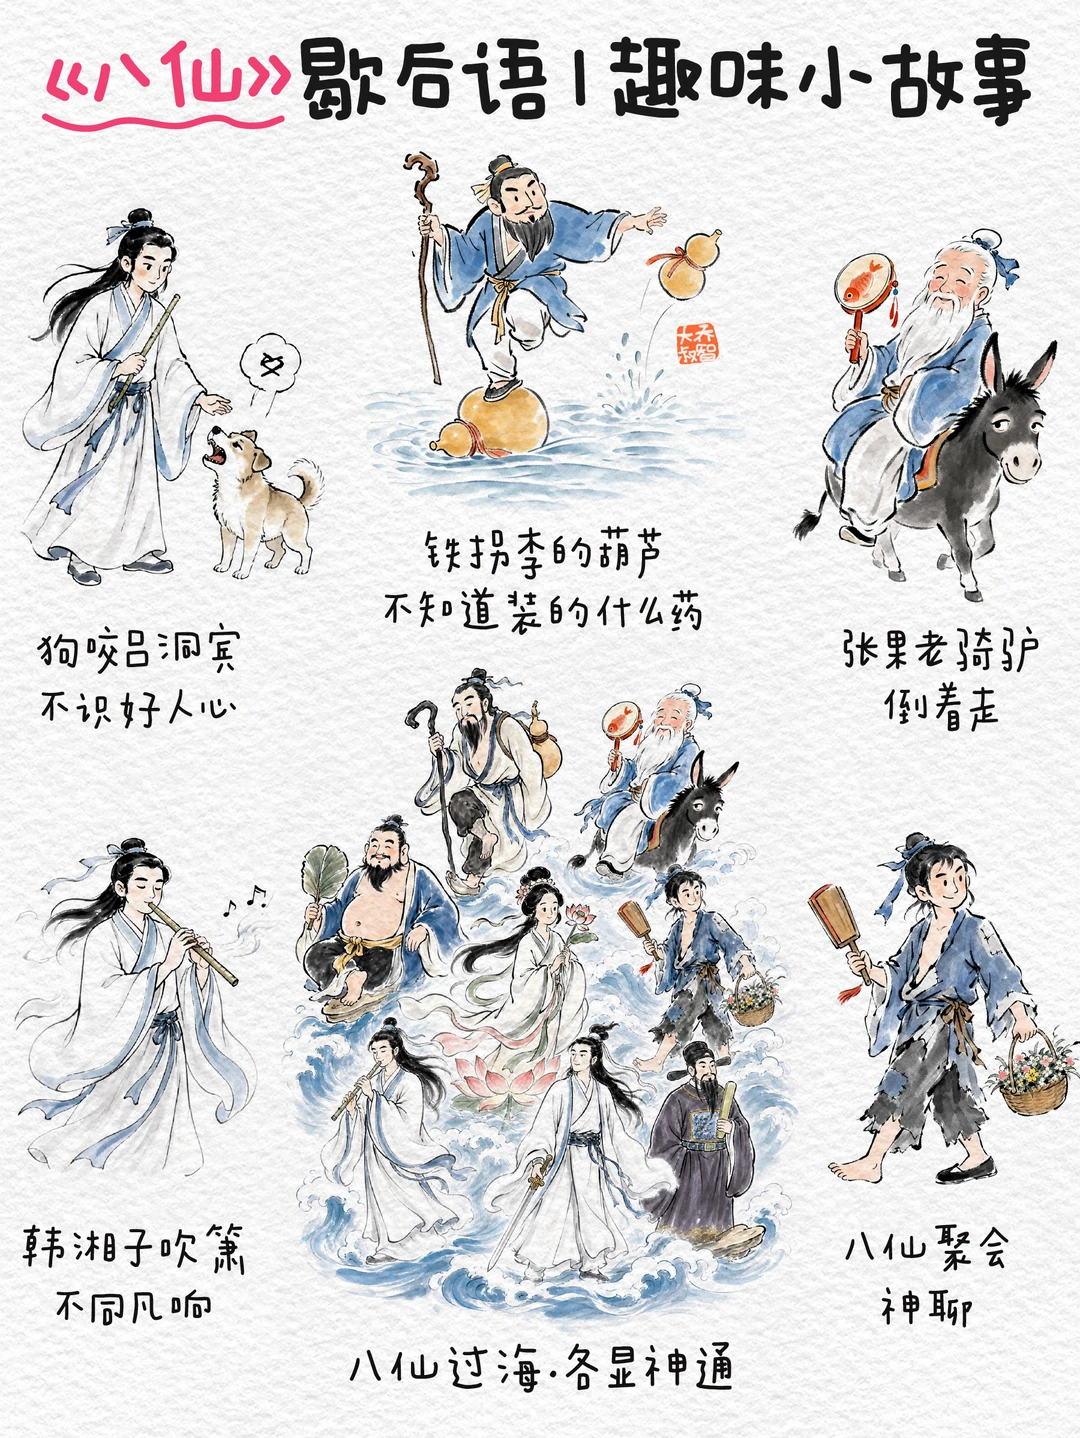 《八仙》歇后语|趣味小故事
大乔
叔智
铁拐李的葫芦
不知道装的什么药
狗咬吕洞宾
不识好人心
张果老骑驴
倒着走
韩湘子吹箫
不同凡响
八仙聚会
神聊
八仙过海·各显神通